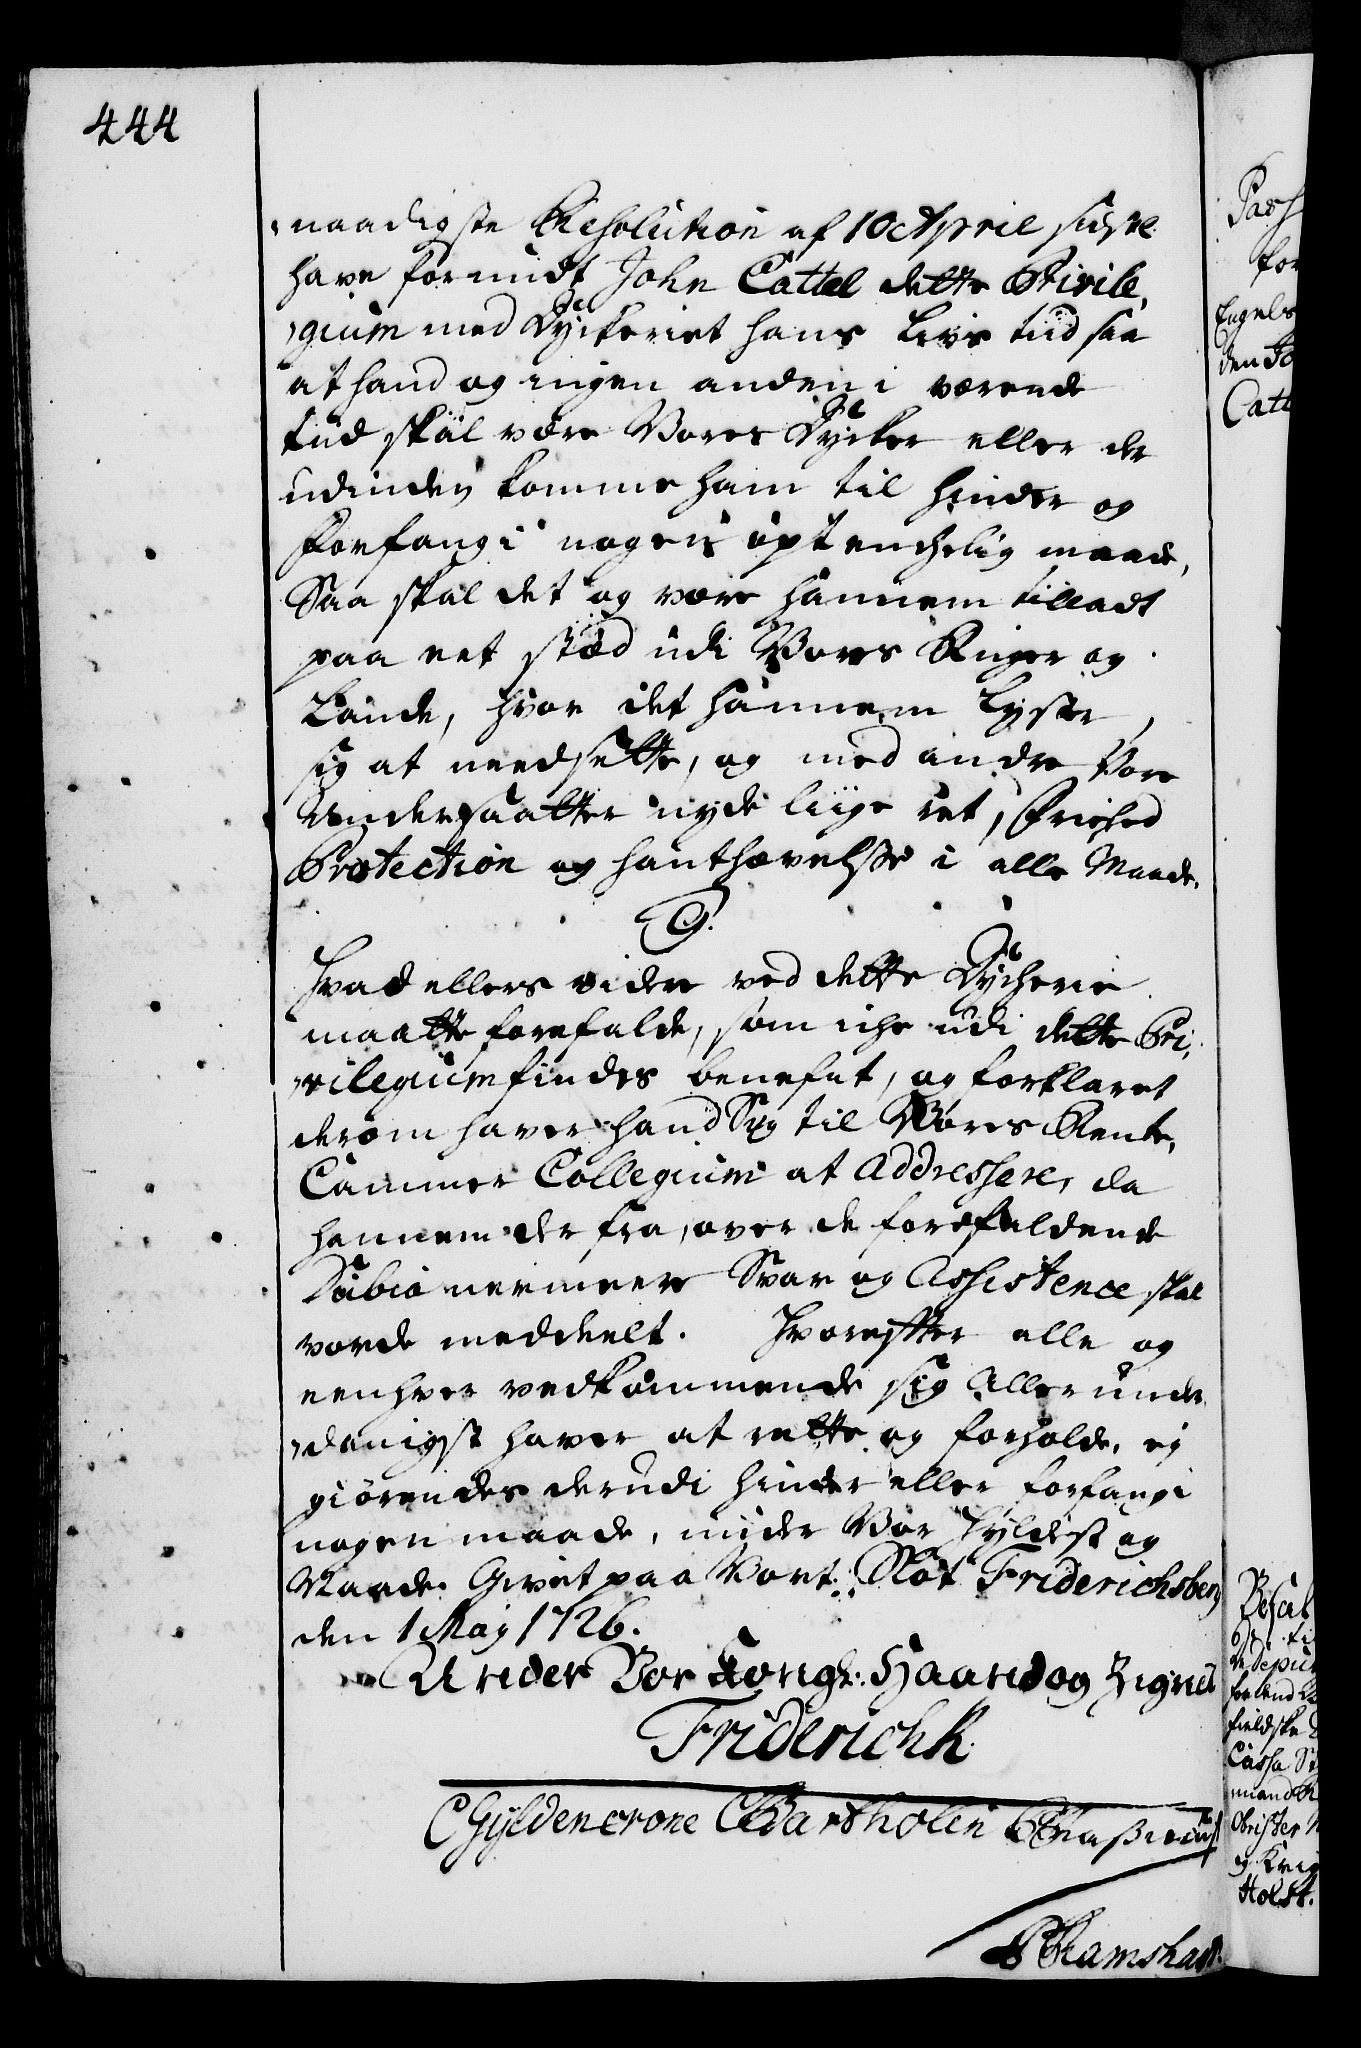 444
naadigste Resolution af 10 April sidste
have forundt John Cattel dette Privile,
gium med Dyckeriet hans Livs tiid saa
at hand og ingen anden i værende
tiid skal være Vores Dycker eller der
udinden komme ham til hinder og
Forfang i nogen optenchelig maade,
Saa skal det og være hannem tilladt
paa eet stæd udi Vores Riger og
Lande, hvor det hannem lyster,
sig at needsette, og med andre Vore
Undersaatter nyde liige ret, Friehed
Protection og hanthævelse i alle Maade.
9.
Hvad ellers videre ved dette Dycherie
maatte forefalde, som iche udi dette Pri,
vilegium findes benefnt, og forklaret
derom haver hand Sig til Vores Rente,
Cammer Collegium at Addressere, da
hannem der fra, over de forefaldende
Dubia nermeere Svar og Assistence skal
vorde meddeelt. Hvorefter alle og
eenhver vedkommende sig Allerunder
danigst haver at rette og forholde, ej
giørendes derudi hinder eller forfang i
nogen maade, under Vor Hyldest og
Naade. Givet paa Vort Slot Friderichsberg
den 1 Maj 1726.
Under Vor Kongl: Haand og Zignet
Friderich R.
C Gyldencrone C Bartholin
P Ramshart.
Pass
for
Engels
den Jo
Catt
Cassa
Holst.